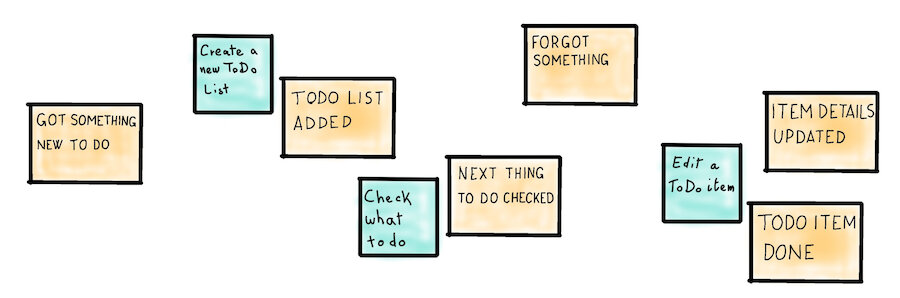 GOT SOMETHING
NEW TO DO
Create a
new ToDo
List
TODO LIST
ADDED
Check
what
to do
NEXT THING
TO DO CHECKED
FORGOT
SOMETHING
Edit a
ToDo item
ITEM DETAILS
UPDATED
TODO ITEM
DONE